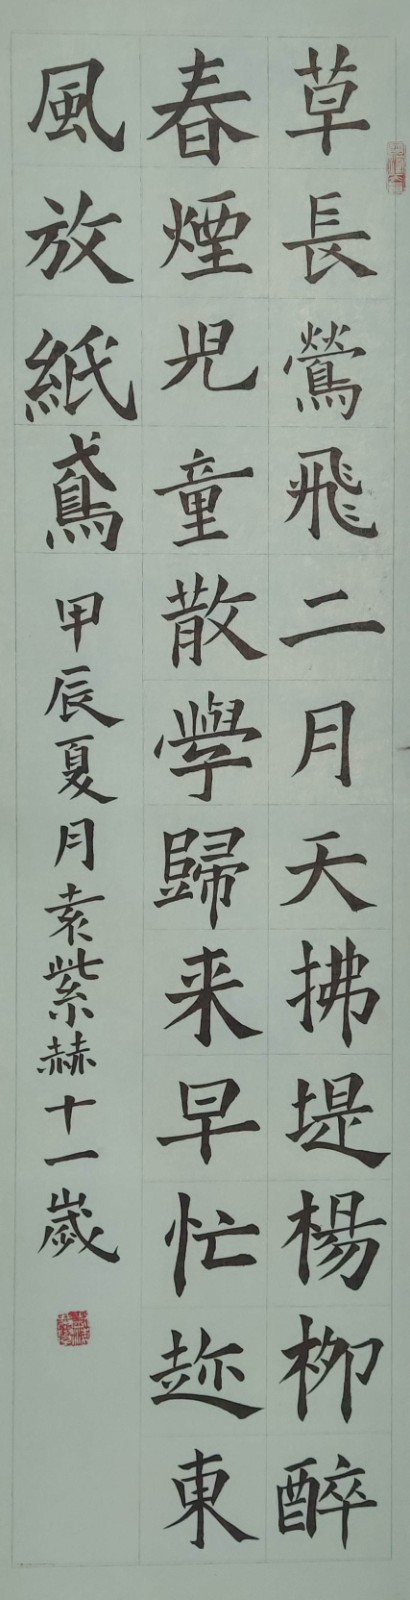 草長鶯飛二月天拂堤楊柳醉
春煙兒童散學歸来早忙趂東
風放紙鳶
甲辰夏月袁紫赫十一歲